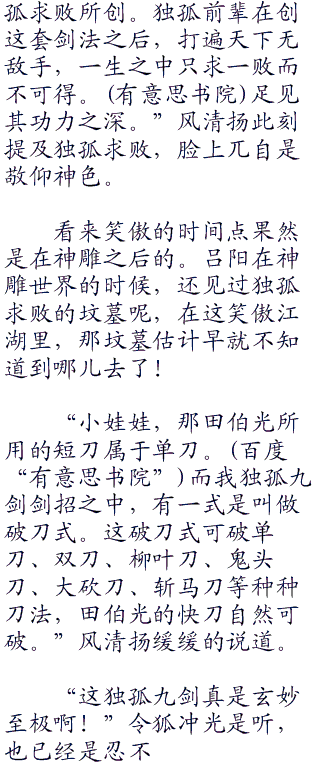 孤求败所创。独孤前辈在创
这套剑法之后，打遍天下无
敌手，一生之中只求一败而
不可得。(有意思书院)足见
其功力之深。”风清扬此刻
提及独孤求败，脸上兀自是
敬仰神色。
看来笑傲的时间点果然
是在神雕之后的。吕阳在神
雕世界的时候，还见过独孤
求败的坟墓呢，在这笑傲江
湖里，那坟墓估计早就不知
道到哪儿去了！
“小娃娃，那田伯光所
用的短刀属于单刀。(百度
“有意思书院”)而我独孤九
剑剑招之中，有一式是叫做
破刀式。这破刀式可破单
刀、双刀、柳叶刀、鬼头
刀、大砍刀、斩马刀等种种
刀法，田伯光的快刀自然可
破。”风清扬缓缓的说道。
“这独孤九剑真是玄妙
至极啊！”令狐冲光是听，
也已经是忍不